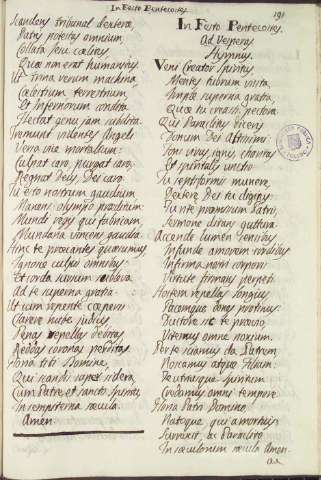 In Festo Pentecostes.
191
Scandens tribunal dexteræ
Patris potestas omnium,
Collata Jesu cœlitus,
Quæ non erat humanitus
Ut trina rerum machina,
Cœlestium terrestrium,
et Infernorum condita.
Flectat genu jam subdita.
Tremunt videntes Angeli
Versa vice mortalium:
Culpat caro, purgat caro,
Regnat Deus Dei caro.
Tu esto nostrum gaudium
Manens olympo præditum:
Mundi regis qui fabricam,
Mundana vincens gaudia.
Hinc te precantes quæsumus,
Ignosce culpis omnibus
Et corda sursum subleva
Ad te superna gratia.
Ut cum repente cœperis
Clarere nube judicis
Penas repellas debitas,
Reddas coronas perditas
Gloria tibi Domine,
Qui scandis super sidera,
Cum Patre, et sancto Spiritu,
In sempiterna sæcula.
Amen.
In Festo Pentecostes.
Ad Vesperas
Hymnus.
Veni Creator spiritus
Mentes tuorum visita,
Imple superna gratia,
Quæ tu creasti pectora
Qui Paraclitus diceris
Donum Dei Altissimi
Fons vivus, ignis, charitas
Et spiritalis unctio.
Tu septiformis munere,
Dexteræ Dei tu digitus
Tu rite promissum Patris,
Sermone ditans guttura.
Accende lumen sensibus
Infunde amorem cordibus
Infirma nostri corporis
Virtute firmans perpeti.
Hostem repellas longius
Pacemque dones protinus:
Ductore sic te prævio,
Vitemus omne noxium.
Per te sciamus da Patrem
Noscamus atque Filium
Te utriusque spiritum
Credamus omni tempore.
Gloria Patri Domino,
Natoque qui a mortuis
Surrexit, ac Paraclito
In sæculorum sæcula Amen.